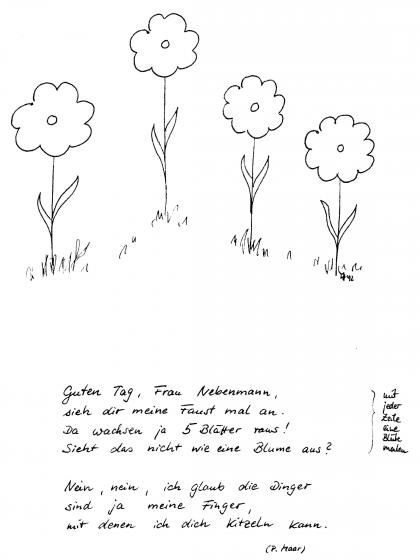 Guten Tag, Frau Nebenmann,
sieh dir meine Faust mal an.
Da wachsen ja 5 Blätter raus!
Sieht das nicht wie eine Blume aus?
mit
jeder
Zeile
eine
Blüte
malen
Nein, nein, ich glaub die Dinger
sind ja meine Finger,
mit denen ich dich kitzeln kann.
(P. Maar)